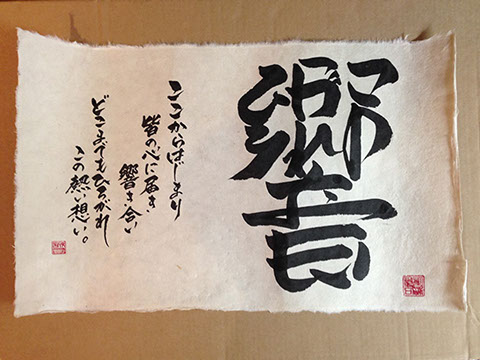 響
ここからはじまり
皆の心に届き
響き合い
どこまでもひろがれ
この熱い想い。